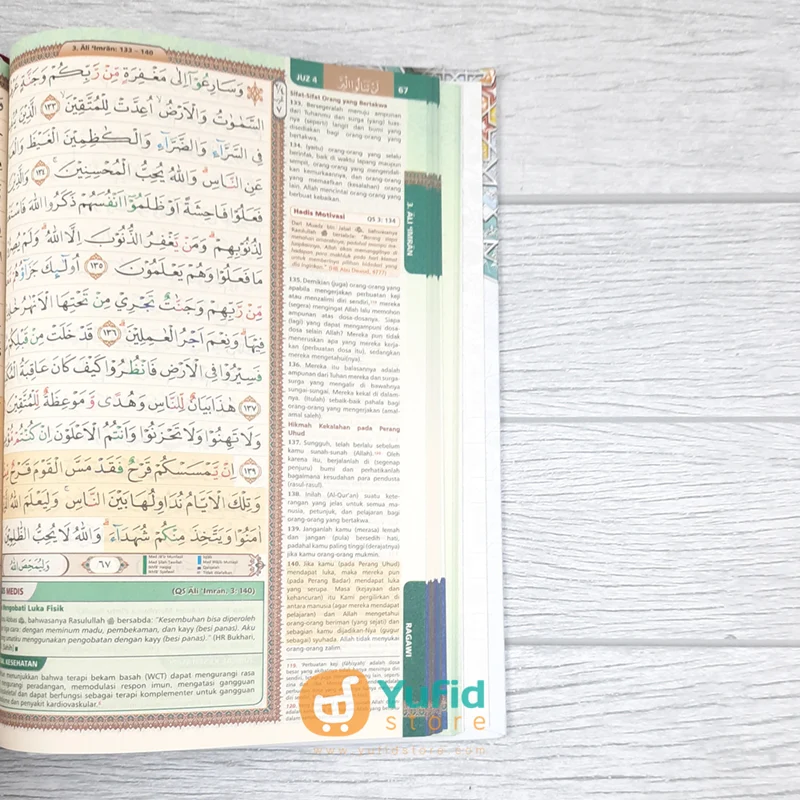 3. Āli 'Imrān: 133 – 140
وَسَارِعُوٓا اِلٰى مَغْفِرَةٍ مِّنْ رَّبِّكُمْ وَجَنَّةٍ
السَّمٰوٰتُ وَالْاَرْضُۙ اُعِدَّتْ لِلْمُتَّقِيْنَۙ ١٣٣ الَّذِيْنَ
فِى السَّرَّاۤءِ وَالضَّرَّاۤءِ وَالْكٰظِمِيْنَ الْغَيْظَ
عَنِ النَّاسِۗ وَاللّٰهُ يُحِبُّ الْمُحْسِنِيْنَۚ ١٣٤ وَالَّذِيْنَ
فَعَلُوْا فَاحِشَةً اَوْ ظَلَمُوْٓا اَنْفُسَهُمْ ذَكَرُوا اللّٰهَ
لِذُنُوْبِهِمْۗ وَمَنْ يَّغْفِرُ الذُّنُوْبَ اِلَّا اللّٰهُۗ وَلَمْ
مَا فَعَلُوْا وَهُمْ يَعْلَمُوْنَ ١٣٥ اُولٰۤىِٕكَ
مِّنْ رَّبِّهِمْ وَجَنّٰتٌ تَجْرِيْ مِنْ تَحْتِهَا الْاَنْهٰرُ
فِيْهَاۗ وَنِعْمَ اَجْرُ الْعٰمِلِيْنَۗ ١٣٦ قَدْ خَلَتْ مِنْ قَبْلِكُمْ
فَسِيْرُوْا فِى الْاَرْضِ فَانْظُرُوْا كَيْفَ كَانَ عَاقِبَةُ
١٣٧ هٰذَا بَيَانٌ لِّلنَّاسِ وَهُدًى وَّمَوْعِظَةٌ لِّلْمُتَّقِيْنَ
وَلَا تَهِنُوْا وَلَا تَحْزَنُوْا وَاَنْتُمُ الْاَعْلَوْنَ اِنْ كُنْتُمْ
١٣٩ اِنْ يَّمْسَسْكُمْ قَرْحٌ فَقَدْ مَسَّ الْقَوْمَ قَرْحٌ
وَتِلْكَ الْاَيَّامُ نُدَاوِلُهَا بَيْنَ النَّاسِۚ وَلِيَعْلَمَ اللّٰهُ
اٰمَنُوْا وَيَتَّخِذَ مِنْكُمْ شُهَدَاۤءَۗ وَاللّٰهُ لَا يُحِبُّ الظّٰلِمِيْنَ
وَلِيُمَحِّصَ اللّٰهُ
٦٧
MEDIS
(QS Āli 'Imrān: 3: 140)
Mengobati Luka Fisik
bahwasanya Rasulullah ﷺ bersabda: "Kesembuhan bisa diperoleh
cara: dengan meminum madu, pembekaman, dan kayy (besi panas). Aku
umatku menggunakan pengobatan dengan kayy (besi panas)." (HR Bukhari,
KESEHATAN
menunjukkan bahwa terapi bekam basah (WCT) dapat mengurangi rasa
mengurangi peradangan, memodulasi respon imun, mengatasi gangguan
dan dapat berfungsi sebagai terapi komplementer untuk gangguan
dan penyakit kardiovaskular.
JUZ 4
67
Sifat-Sifat Orang yang Bertakwa
133. Bersegeralah menuju ampunan
dari Tuhanmu dan surga (yang) luas-
nya (seperti) langit dan bumi yang
disediakan bagi orang-orang yang
bertakwa,
134. (yaitu) orang-orang yang selalu
berinfak, baik di waktu lapang maupun
sempit, orang-orang yang mengendali-
kan kemurkaannya, dan orang-orang
yang memaafkan (kesalahan) orang
lain. Allah mencintai orang-orang yang
berbuat kebaikan.
Hadis Motivasi
QS 3: 134
135. Demikian (juga) orang-orang yang
apabila mengerjakan perbuatan keji
atau menzalimi diri sendiri, mereka
(segera) mengingat Allah lalu memohon
ampunan atas dosa-dosanya. Siapa
(lagi) yang dapat mengampuni dosa-
dosa selain Allah? Mereka pun tidak
meneruskan apa yang mereka kerja-
kan (perbuatan dosa itu), sedangkan
mereka mengetahui(nya).
136. Mereka itu balasannya adalah
ampunan dari Tuhan mereka dan surga-
surga yang mengalir di bawahnya
sungai-sungai. Mereka kekal di dalam-
nya. (Itulah) sebaik-baik pahala bagi
orang-orang yang mengerjakan (amal-
amal saleh).
Hikmah Kekalahan pada Perang
Uhud
137. Sungguh, telah berlalu sebelum
kamu sunah-sunah (Allah). Oleh
karena itu, berjalanlah di (segenap
penjuru) bumi dan perhatikanlah
bagaimana kesudahan para pendusta
(rasul-rasul).
138. Inilah (Al-Qur'an) suatu kete-
rangan yang jelas untuk semua ma-
nusia, petunjuk, dan pelajaran bagi
orang-orang yang bertakwa.
139. Janganlah kamu (merasa) lemah
dan jangan (pula) bersedih hati,
padahal kamu paling tinggi (derajatnya)
jika kamu orang-orang mukmin.
140. Jika kamu (pada Perang Uhud)
mendapat luka, maka mereka pun
(pada Perang Badar) mendapat luka
yang serupa. Masa (kejayaan dan
kehancuran) itu Kami pergilirkan di
antara manusia (agar mereka mendapat
pelajaran) dan Allah mengetahui
orang-orang beriman (yang sejati) dan
sebagian kamu dijadikan-Nya (gugur
sebagai) syuhada. Allah tidak menyukai
orang-orang zalim.
3. ĀLI 'IMRĀN
RAGAWI
Yufid
store
www.yufidstore.com